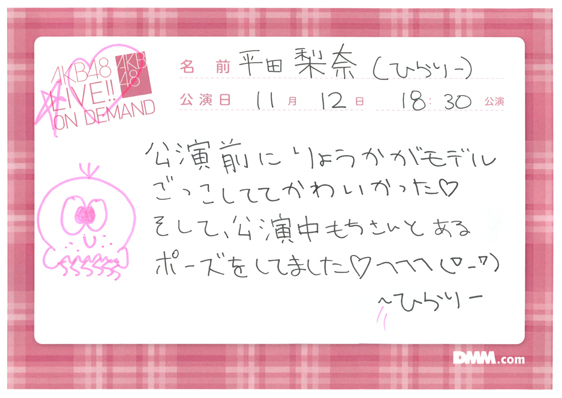 AKB48
LIVE!!
ON DEMAND
AKB
48
名 前 平田 梨奈 (ひらりー)
公演日 11月 12日 18:30公演
公演前にりょうかがモデル
ごっこしててかわいかった♡
そして、公演中もちさんとある
ポーズをしてました♡
~ひらりー
DMM.com